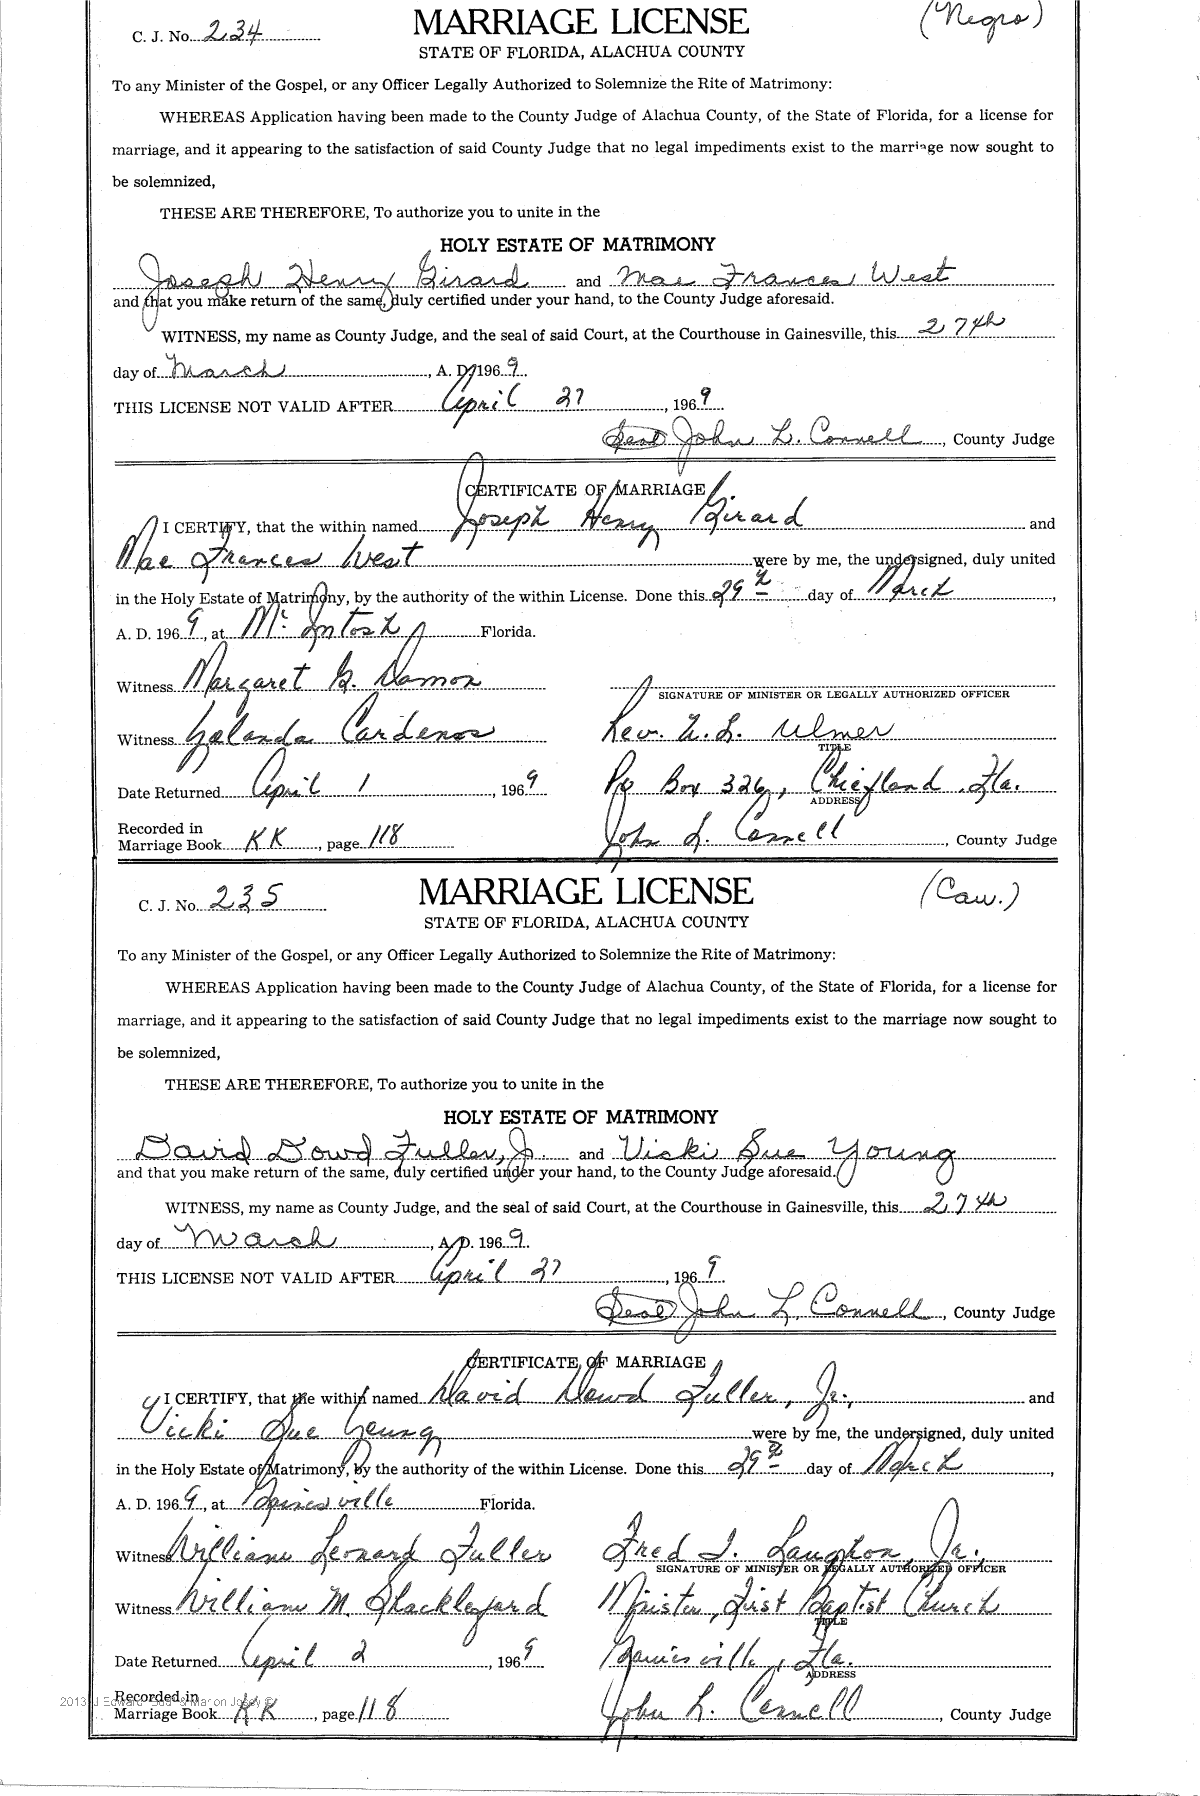 C. J. No. 234 MARRIAGE LICENSE (Negro)
STATE OF FLORIDA, ALACHUA COUNTY
To any Minister of the Gospel, or any Officer Legally Authorized to Solemnize the Rite of Matrimony:
WHEREAS Application having been made to the County Judge of Alachua County, of the State of Florida, for a license for
marriage, and it appearing to the satisfaction of said County Judge that no legal impediments exist to the marriage now sought to
be solemnized,
THESE ARE THEREFORE, To authorize you to unite in the
HOLY ESTATE OF MATRIMONY
Joseph Henry Girard and Mae Frances West
and that you make return of the same, duly certified under your hand, to the County Judge aforesaid.
WITNESS, my name as County Judge, and the seal of said Court, at the Courthouse in Gainesville, this 27th
day of March, A. D. 1969.
THIS LICENSE NOT VALID AFTER April 27, 1969.
Seal John L. Connell, County Judge
CERTIFICATE OF MARRIAGE
I CERTIFY, that the within named Joseph Henry Girard and
Mae Frances West were by me, the undersigned, duly united
in the Holy Estate of Matrimony, by the authority of the within License. Done this 29th day of March,
A. D. 1969, at McIntosh, Florida.
Witness Margaret G. Damon
SIGNATURE OF MINISTER OR LEGALLY AUTHORIZED OFFICER
Witness Yolanda Cardenos Rev. U. L. Ulmer
TITLE
Date Returned April 1, 1969 Po Box 326, Chiefland, Fla.
ADDRESS
Recorded in
Marriage Book KK, page 118 John L. Connell, County Judge
C. J. No. 235 MARRIAGE LICENSE (Cau.)
STATE OF FLORIDA, ALACHUA COUNTY
To any Minister of the Gospel, or any Officer Legally Authorized to Solemnize the Rite of Matrimony:
WHEREAS Application having been made to the County Judge of Alachua County, of the State of Florida, for a license for
marriage, and it appearing to the satisfaction of said County Judge that no legal impediments exist to the marriage now sought to
be solemnized,
THESE ARE THEREFORE, To authorize you to unite in the
HOLY ESTATE OF MATRIMONY
David Dowd Fuller, Jr. and Vicki Sue Young
and that you make return of the same, duly certified under your hand, to the County Judge aforesaid.
WITNESS, my name as County Judge, and the seal of said Court, at the Courthouse in Gainesville, this 27th
day of March, A. D. 1969.
THIS LICENSE NOT VALID AFTER April 27, 1969.
Seal John L. Connell, County Judge
CERTIFICATE OF MARRIAGE
I CERTIFY, that the within named David Dowd Fuller, Jr., and
Vicki Sue Young were by me, the undersigned, duly united
in the Holy Estate of Matrimony, by the authority of the within License. Done this 29th day of March,
A. D. 1969, at Gainesville Florida.
Witness William Leonard Fuller Fred T. Laughon, Jr.,
SIGNATURE OF MINISTER OR LEGALLY AUTHORIZED OFFICER
Witness William M. Shackleford Minister, First Baptist Church
TITLE
Date Returned April 2, 1969 Gainesville, Fla.
ADDRESS
Recorded in
Marriage Book KK, page 118 John L. Connell, County Judge